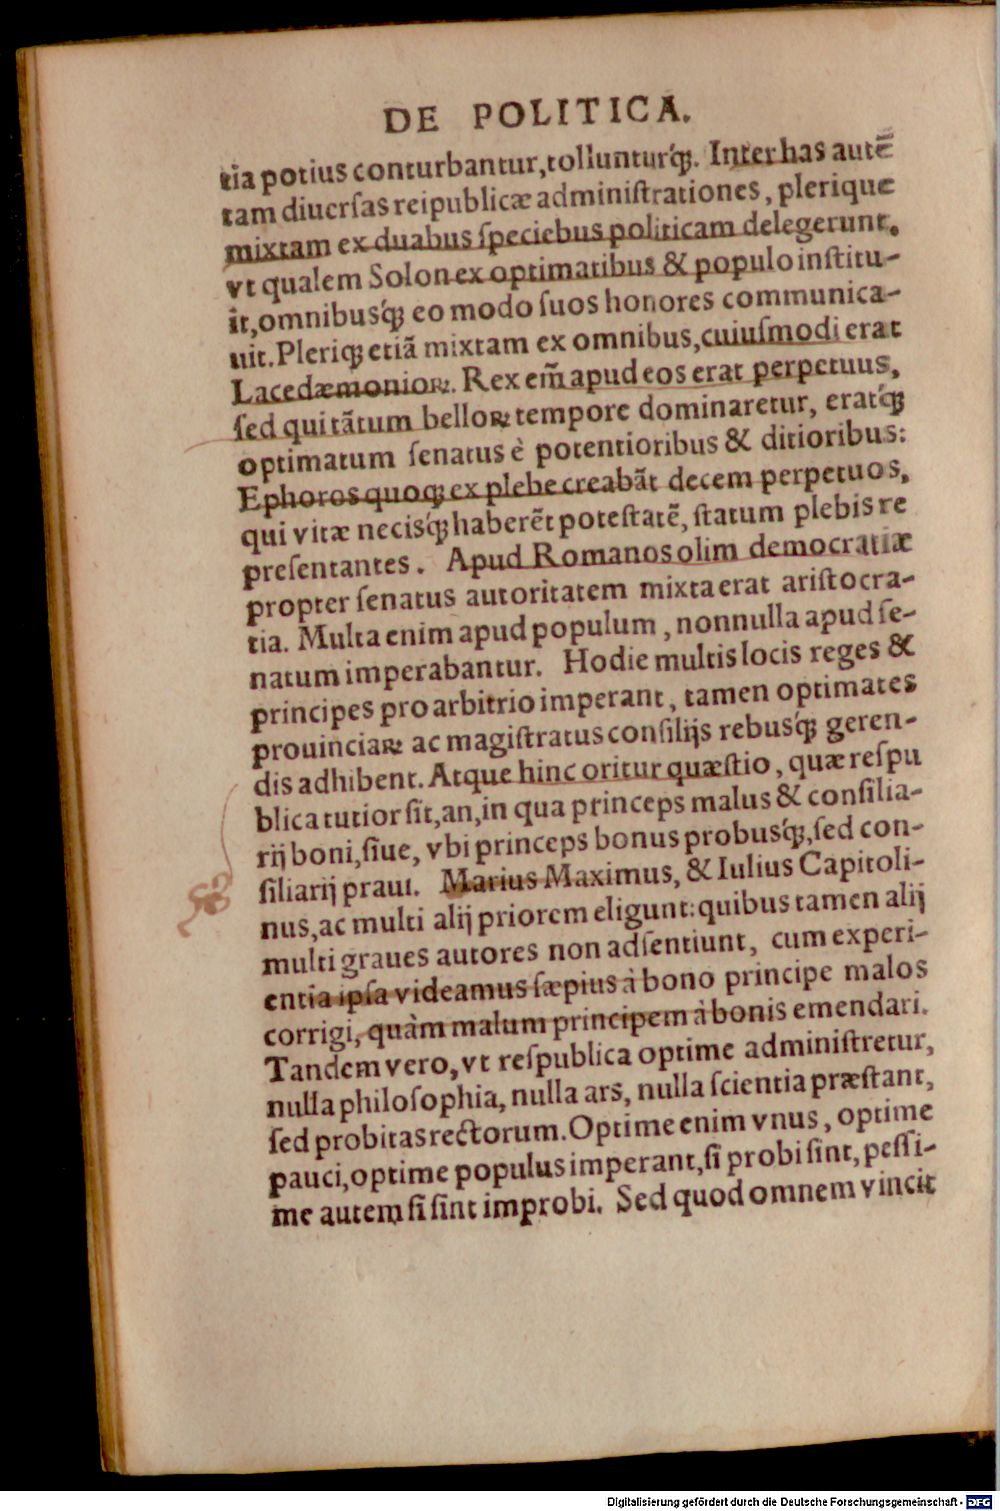 DE POLITICA.
tia potius conturbantur, tollunturq́ꝫ. Inter has autē
tam diuersas reipublicæ administrationes, plerique
mixtam ex duabus speciebus politicam delegerunt.
vt qualem Solon ex optimatibus & populo institu-
it, omnibusq́ꝫ eo modo suos honores communica-
uit. Pleriqꝫ etiā mixtam ex omnibus, cuiusmodi erat
Lacedæmonioꝝ. Rex em̄ apud eos erat perpetuus,
sed qui tātum belloꝝ tempore dominaretur, eratq́ꝫ
optimatum senatus è potentioribus & ditioribus:
Ephoros quoqꝫ ex plebe creabāt decem perpetuos,
qui vitæ necisq́ꝫ haberēt potestatē, statum plebis re
presentantes. Apud Romanos olim democratiæ
propter senatus autoritatem mixta erat aristocra-
tia. Multa enim apud populum, nonnulla apud se-
natum imperabantur. Hodie multis locis reges &
principes pro arbitrio imperant, tamen optimates
prouinciaꝝ ac magistratus consilijs rebusq́ꝫ geren-
dis adhibent. Atque hinc oritur quæstio, quæ respu
blica tutior sit, an, in qua princeps malus & consilia-
rij boni, siue, vbi princeps bonus probusq́ꝫ, sed con-
siliarij praui. Marius Maximus, & Iulius Capitoli-
nus, ac multi alij priorem eligunt: quibus tamen alij
multi graues autores non adsentiunt, cum experi-
entia ipsa videamus sæpius à bono principe malos
corrigi, quàm malum principem à bonis emendari.
Tandem vero, vt respublica optime administretur,
nulla philosophia, nulla ars, nulla scientia præstant,
sed probitas rectorum. Optime enim vnus, optime
pauci, optime populus imperant, si probi sint, pessi-
me autem si sint improbi. Sed quod omnem vincit
Digitalisierung gefördert durch die Deutsche Forschungsgemeinschaft - DFG